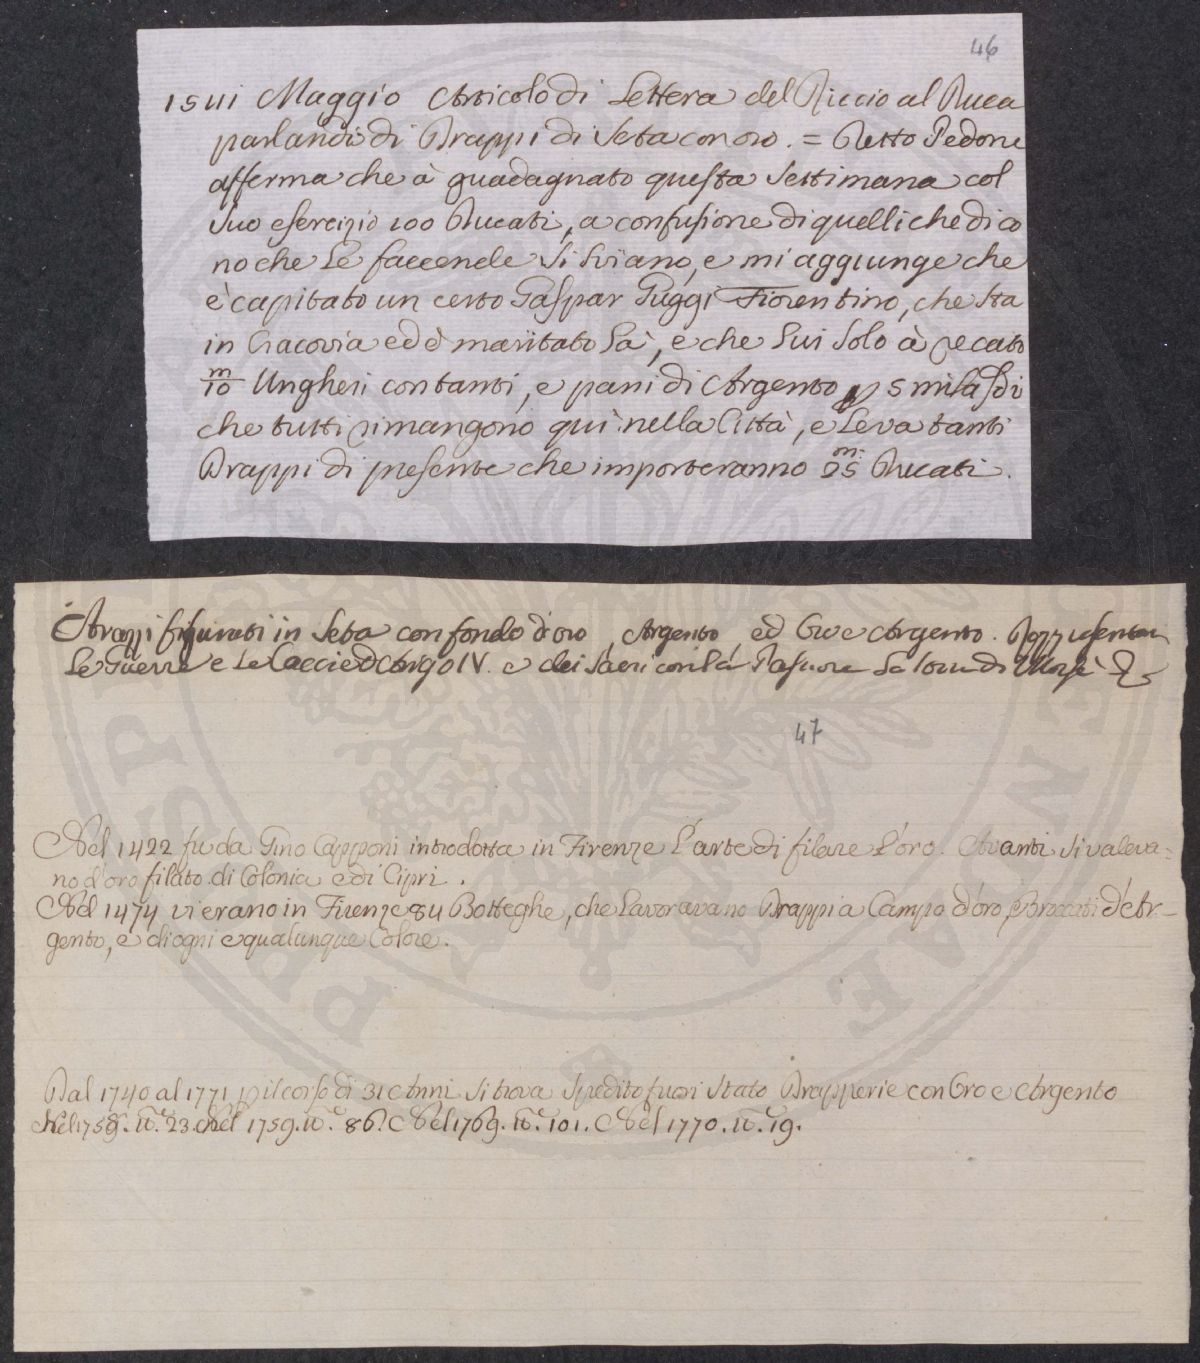 46
1541 Maggio Articolo di Lettera del Riccio al Duca
parlando di Drappi di Seta con oro. = Detto Pedone
afferma che à guadagnato questa Settimana col
suo esercizio 100 Ducati, a confusione di quelli che dico
no che le faccende si sviano, e mi aggiunge che
è capitato un certo Gaspar Guggi Fiorentino, che sta
in Cracovia ed è maritato là, e che lui solo à recato
m/10 Ungheri contanti, e pani di Argento p 5 mila
che tutti rimangono quì nella Città, e leva tanti
Drappi di presente che importeranno 25 m Ducati.
Arazzi figurati in Seta con fondo d'oro, Argento ed Oro e Argento.
Le Guerre e le Caccie d'Arrigo IV. e dei Sacri con la
47
Nel 1422 fu da Gino Capponi introdotta in Firenze l'arte di filare l'oro. Avanti si valeva=
no d'oro filato di Colonia e di Cipri.
Nel 1474 vi erano in Firenze 84 Botteghe, che lavoravano Drappi a Campo d'oro, e Broccati d'Ar-
gento, e di ogni e qualunque Colore.
Dal 1740 al 1771 p il corso di 31 Anni si trova spedito fuori Stato Drapperie con Oro e Argento
Nel 1758. N.° 23. Nel 1759. N.° 86. Nel 1769. N.° 101. Nel 1770. N.° 19.